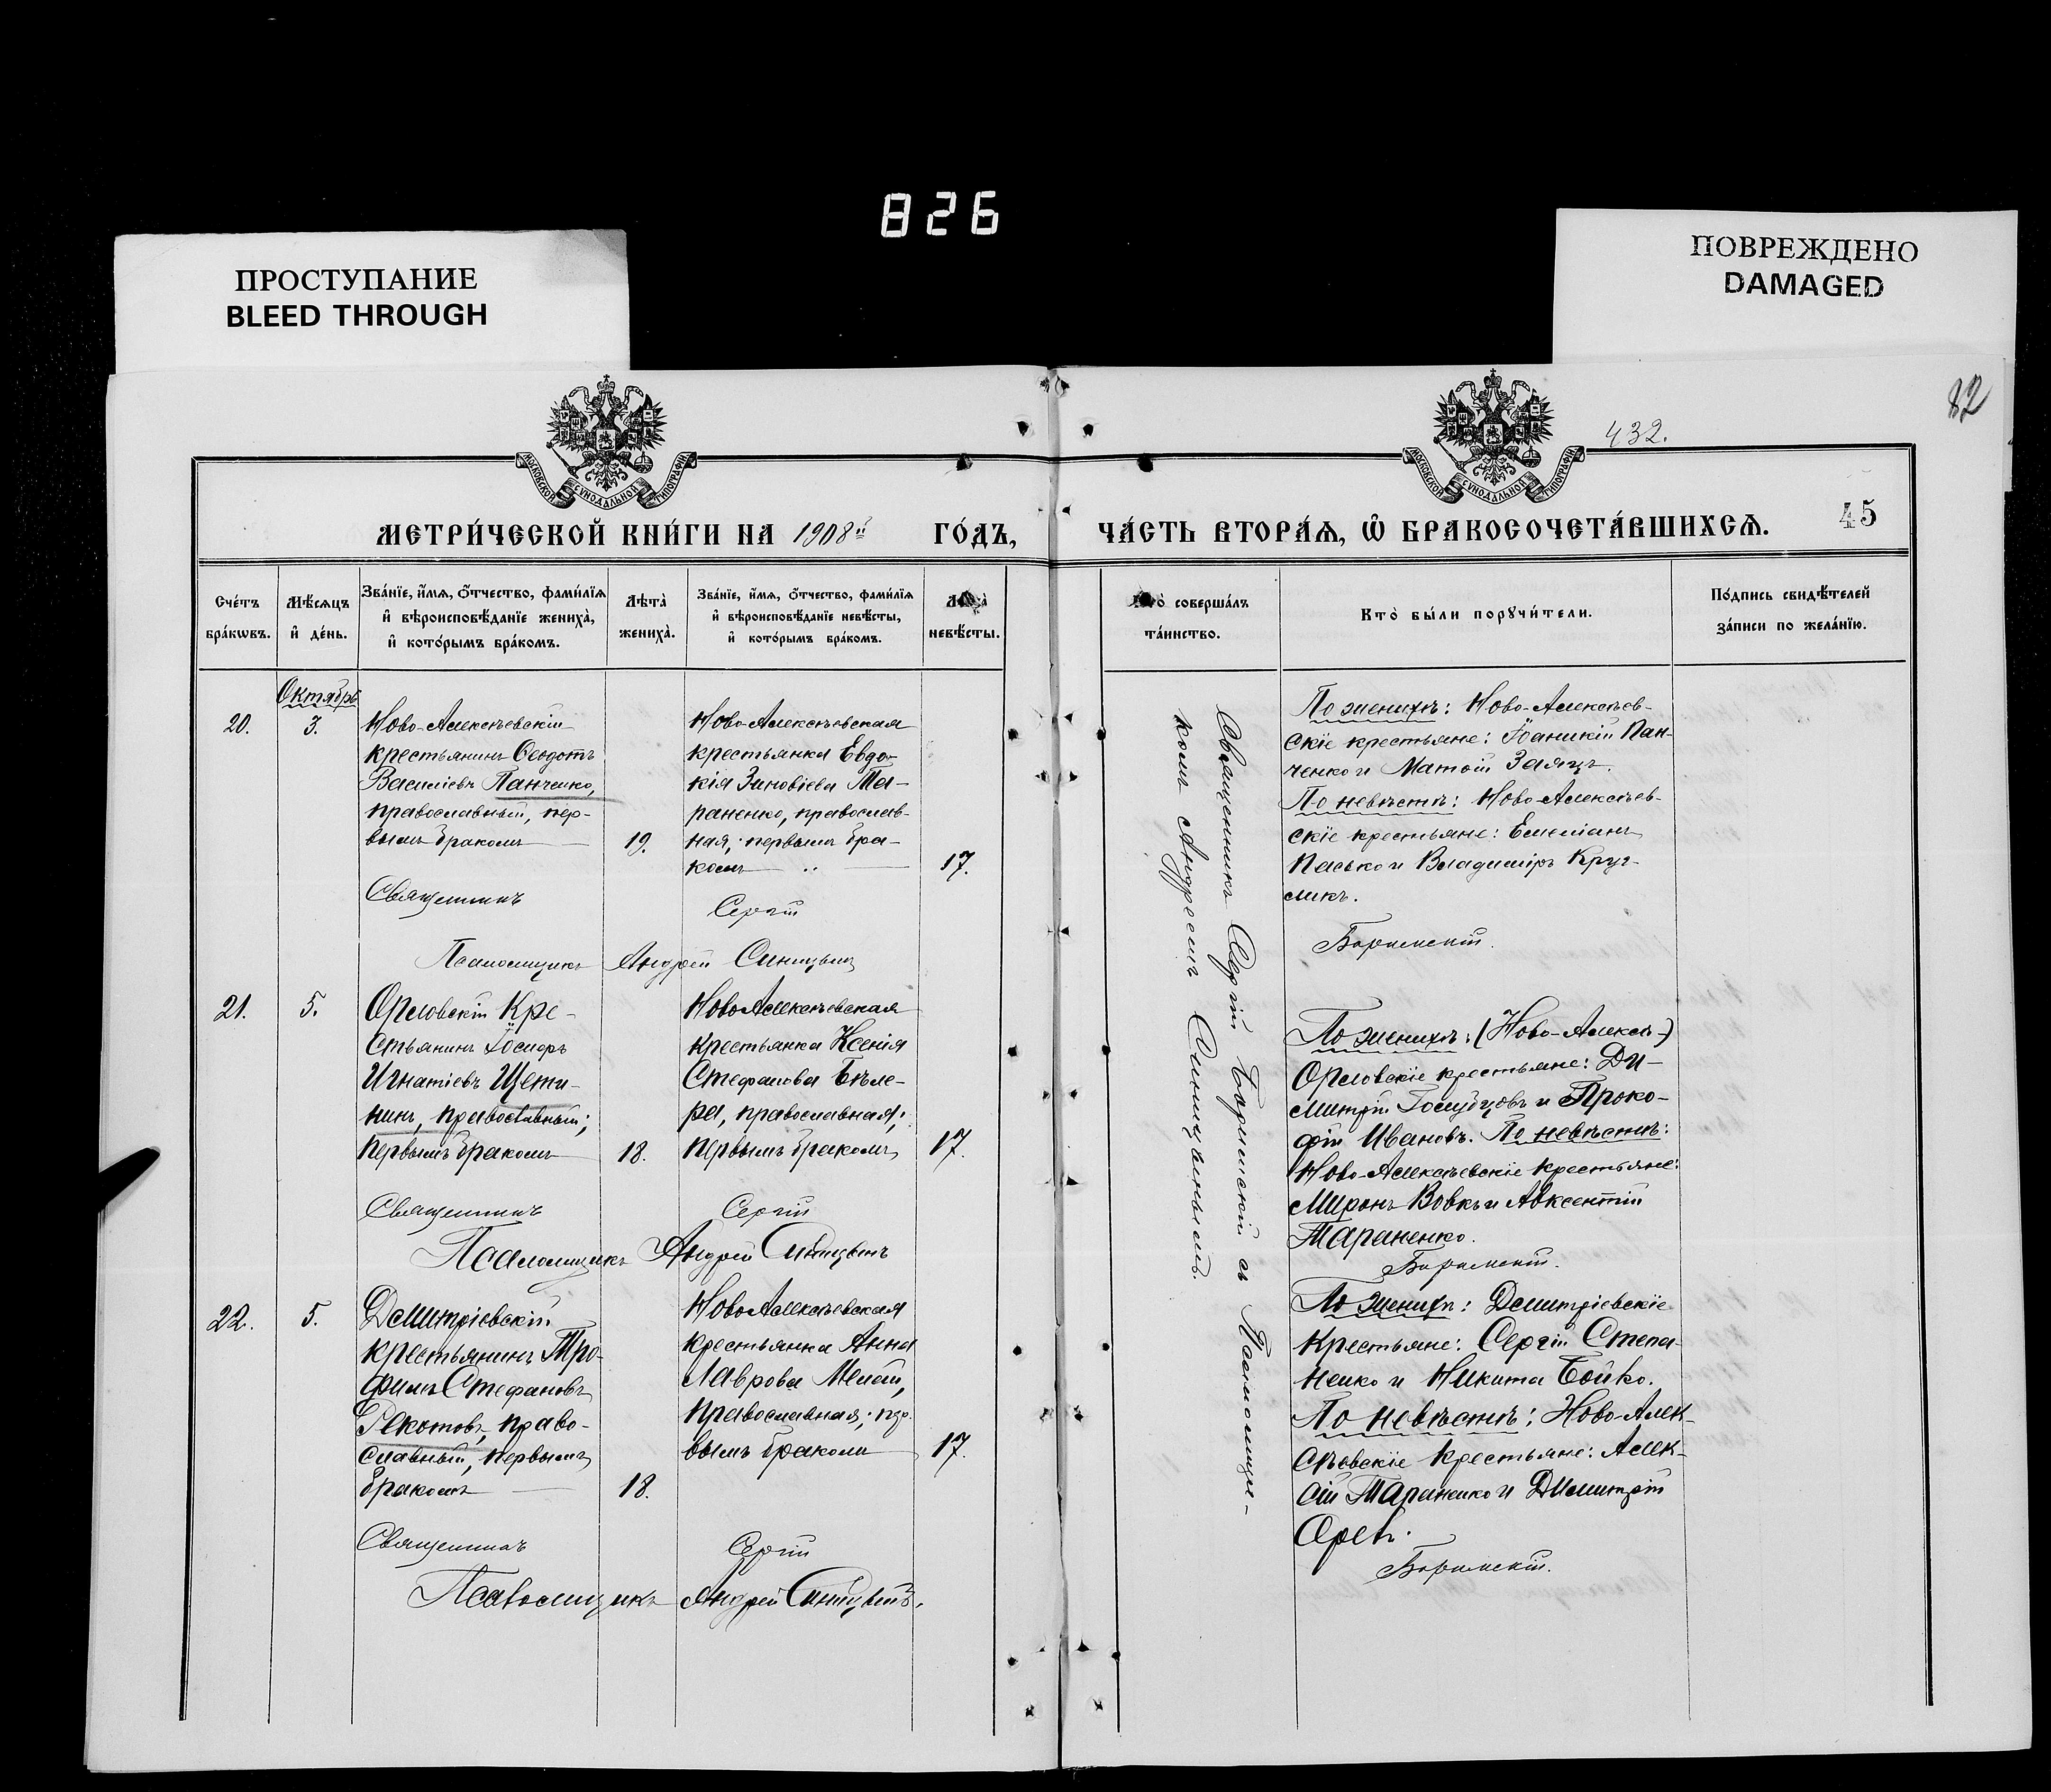 826
ПРОСТУПАНИЕ
BLEED THROUGH
ПОВРЕЖДЕНО
DAMAGED
82
432.
МОСКОВСКОЙ СѴНОДАЛЬНОЙ ТИПОГРАФІИ
МОСКОВСКОЙ СѴНОДАЛЬНОЙ ТИПОГРАФІИ
МЕТРИ́ЧЕСКОЙ КНИ́ГИ НА 1908й ГО́ДЪ,
ЧА́СТЬ ВТОРА́Ѧ, Ѽ БРАКОСОЧЕТА́ВШИХСѦ.
45
Сче́тъ
бра́кѡвъ.
Мѣ́сяцъ
и҆ де́нь.
Зва́нїе, и҆́мѧ, ѻ҆́тчество, фами́лїѧ
и҆ вѣроисповѣ́данїе жениха̀,
и҆ кото́рымъ бра́комъ.
Лѣта̀
жениха̀.
Зва́нїе, и҆́мѧ, ѻ҆́тчество, фами́лїѧ
и҆ вѣроисповѣ́данїе невѣ́сты,
и҆ кото́рымъ бра́комъ.
невѣ́сты.
соверша́лъ
та́инство.
Кто̀ бы́ли порꙋчи́тели.
По́дпись свидѣ́телей
за́писи по жела́нїю.
Октябрь
20.
3.
Ново-Алексѣевскій
крестьянинъ Ѳеодотъ
Василіевъ Панченко,
православный, пер-
вымъ бракомъ
19.
Ново-Алексѣевская
крестьянка Евдо-
кія Зиновіева Та-
раненко, православ-
ная, первымъ бра-
комъ
17.
Священникъ Сергій Боримскій съ Псаломщи-
комъ Андреемъ Синицынымъ.
По женихѣ: Ново-Алексѣев-
скіе крестьяне: Іоанникій Пан-
ченко и Матѳій Заяцъ.
По невѣстѣ: Ново-Алексѣев-
скіе крестьяне: Емеліанъ
Пасько и Владиміръ Круг-
ликъ.
Священникъ Сергій Боримскій.
Псаломщикъ Андрей Синицынъ
21.
5.
Орловскій Кре-
стьянинъ Іосифъ
Игнатіевъ Щети-
нинъ, православный;
первымъ бракомъ
18.
Ново Алексѣевская
крестьянка Ксенія
Стефанова Бѣле-
ра, православная;
первымъ бракомъ
17.
По женихѣ: (Ново-Алексѣ-)
Орловскіе крестьяне: Ди-
митрій Голубцовъ и Проко-
фій Ивановъ. По невѣстѣ:
Ново-Алексѣевскіе крестьяне:
Миронъ Вовкъ и Авксентій
Тараненко.
Священникъ Сергій Боримскій.
Псаломщикъ Андрей Синицынъ
22.
5.
Димитріевскій
крестьянинъ Тро-
фимъ Стефановъ
Рекотовъ, право-
славный, первымъ
бракомъ
18.
Ново Алексѣевская
крестьянка Анна
Лаврова
Православная, пер-
вымъ бракомъ
17.
По женихѣ: Димитріевскіе
Крестьяне: Сергій Степа-
ненко и Никита Бойко.
По невѣстѣ: Ново-Алек-
сѣевскіе Крестьяне: Алек-
сій Тараненко и Димитрій
Священникъ Сергій Боримскій.
Псаломщикъ Андрей Синицынъ.